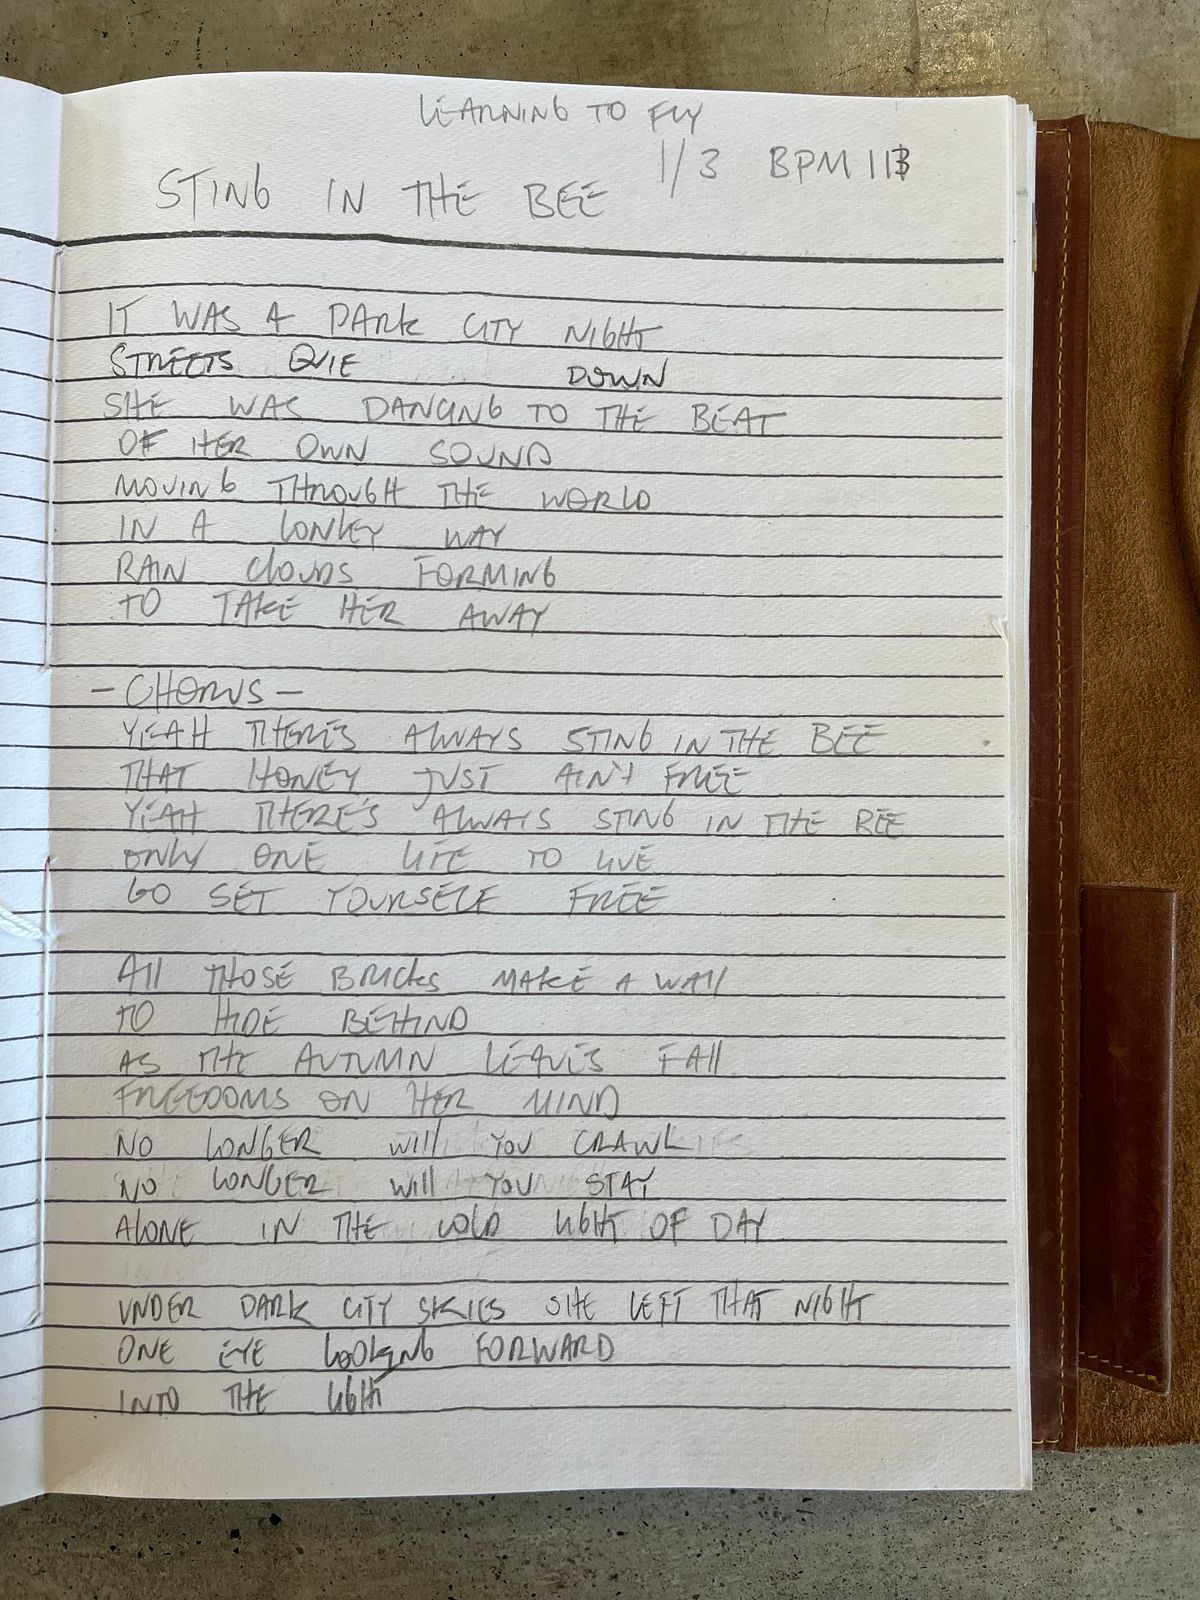 LEARNING TO FLY
1/3 BPM 113
STING IN THE BEE
IT WAS A DARK CITY NIGHT
STREETS QUIE DOWN
SHE WAS DANCING TO THE BEAT
OF HER OWN SOUND
MOVING THROUGH THE WORLD
IN A LONLEY WAY
RAIN CLOUDS FORMING
TO TAKE HER AWAY
- CHORUS -
YEAH THERE'S ALWAYS STING IN THE BEE
THAT HONEY JUST AIN'T FREE
YEAH THERE'S ALWAYS STING IN THE BEE
ONLY ONE LIFE TO LIVE
GO SET YOURSELF FREE
All THOSE BRICKS MAKE A WAll
TO HIDE BEHIND
AS THE AUTUMN LEAVES FAll
FREEDOMS ON HER MIND
NO LONGER WIll YOU CRAWL
NO LONGER WIll YOU STAY
ALONE IN THE COLD LIGHT OF DAY
UNDER DARK CITY SKIES SHE LEFT THAT NIGHT
ONE EYE LOOKING FORWARD
INTO THE LIGHT